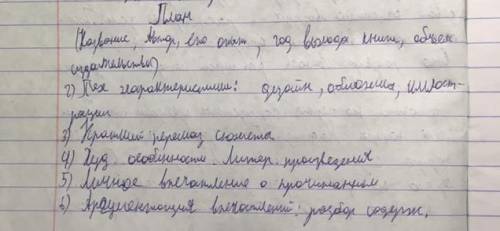 План
(Название, Автор, его опыт, год выхода книги, объем
издательство)
2) Тех характеристики: дизайн, обложка, иллюст-
рации
3) Краткий пересказ сюжета
4) Худ особенности литер. произведения
5) Личное впечатление о прочитанном
6) Аргументация впечатлений: разбор содерж.